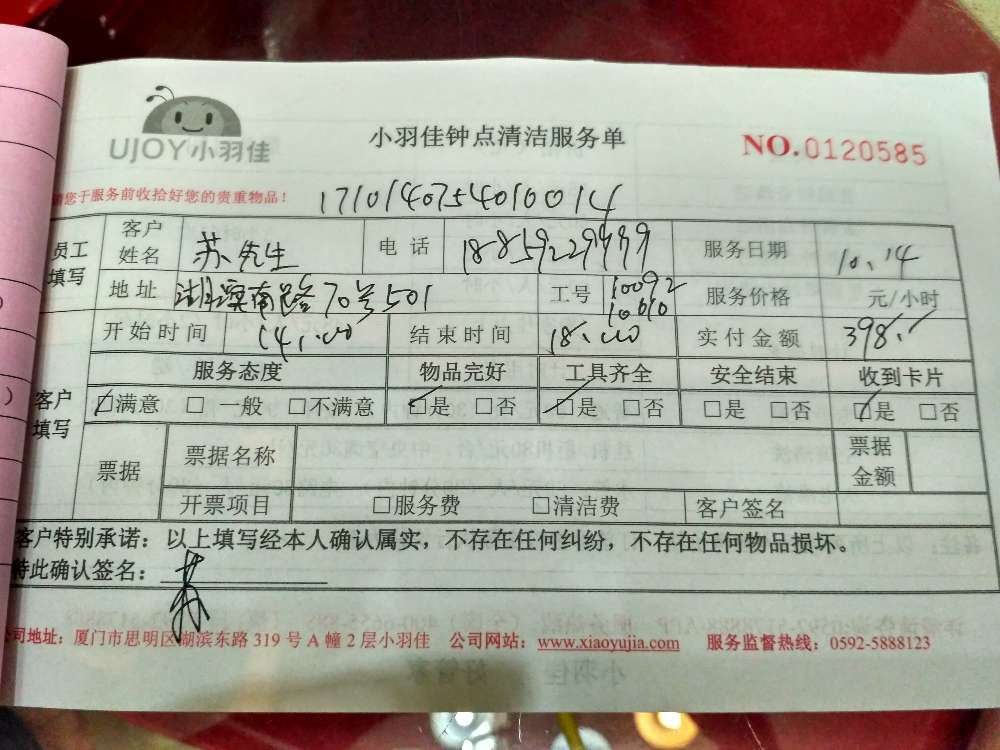 UJOY小羽佳
小羽佳钟点清洁服务单
NO.0120585
您于服务前收拾好您的贵重物品！
1710140754010014
员工填写 客户姓名 苏先生 电话 18859229999 服务日期 10.14
地址 湖滨南路70号501 工号 10092 10010 服务价格 元/小时
开始时间 14:00 结束时间 18:00 实付金额 398.
客户填写 服务态度 物品完好 工具齐全 安全结束 收到卡片
☑满意 □一般 □不满意 ☑是 □否 ☑是 □否 □是 □否 ☑是 □否
票据 票据名称 票据金额
开票项目 □服务费 □清洁费 客户签名
客户特别承诺：以上填写经本人确认属实，不存在任何纠纷，不存在任何物品损坏。
特此确认签名： 苏
公司地址：厦门市思明区湖滨东路 319 号 A 幢 2 层小羽佳 公司网站：www.xiaoyujia.com 服务监督热线：0592-5888123